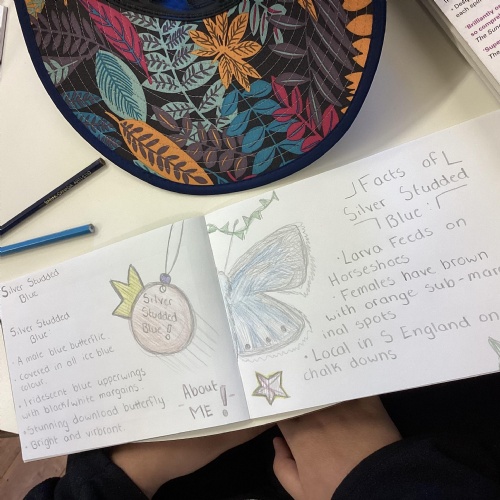 Silver Studded
Blue
Silver Studded
Blue
· A male blue butterfly.
· Covered in all ice blue
colour.
· Iridescent blue upperwings
with black/white margains.
· Stunning download butterfly
· Bright and vibrant.
Silver
Studded
Blue!
About
ME!
Facts of
Silver Studded
Blue:
· Larva Feeds on
Horseshoes
· Females have brown
with orange sub-mar
inal spots
· Local in S England on
chalk downs
each s
"Brilliantly
so compr
The Sun
"Super
The